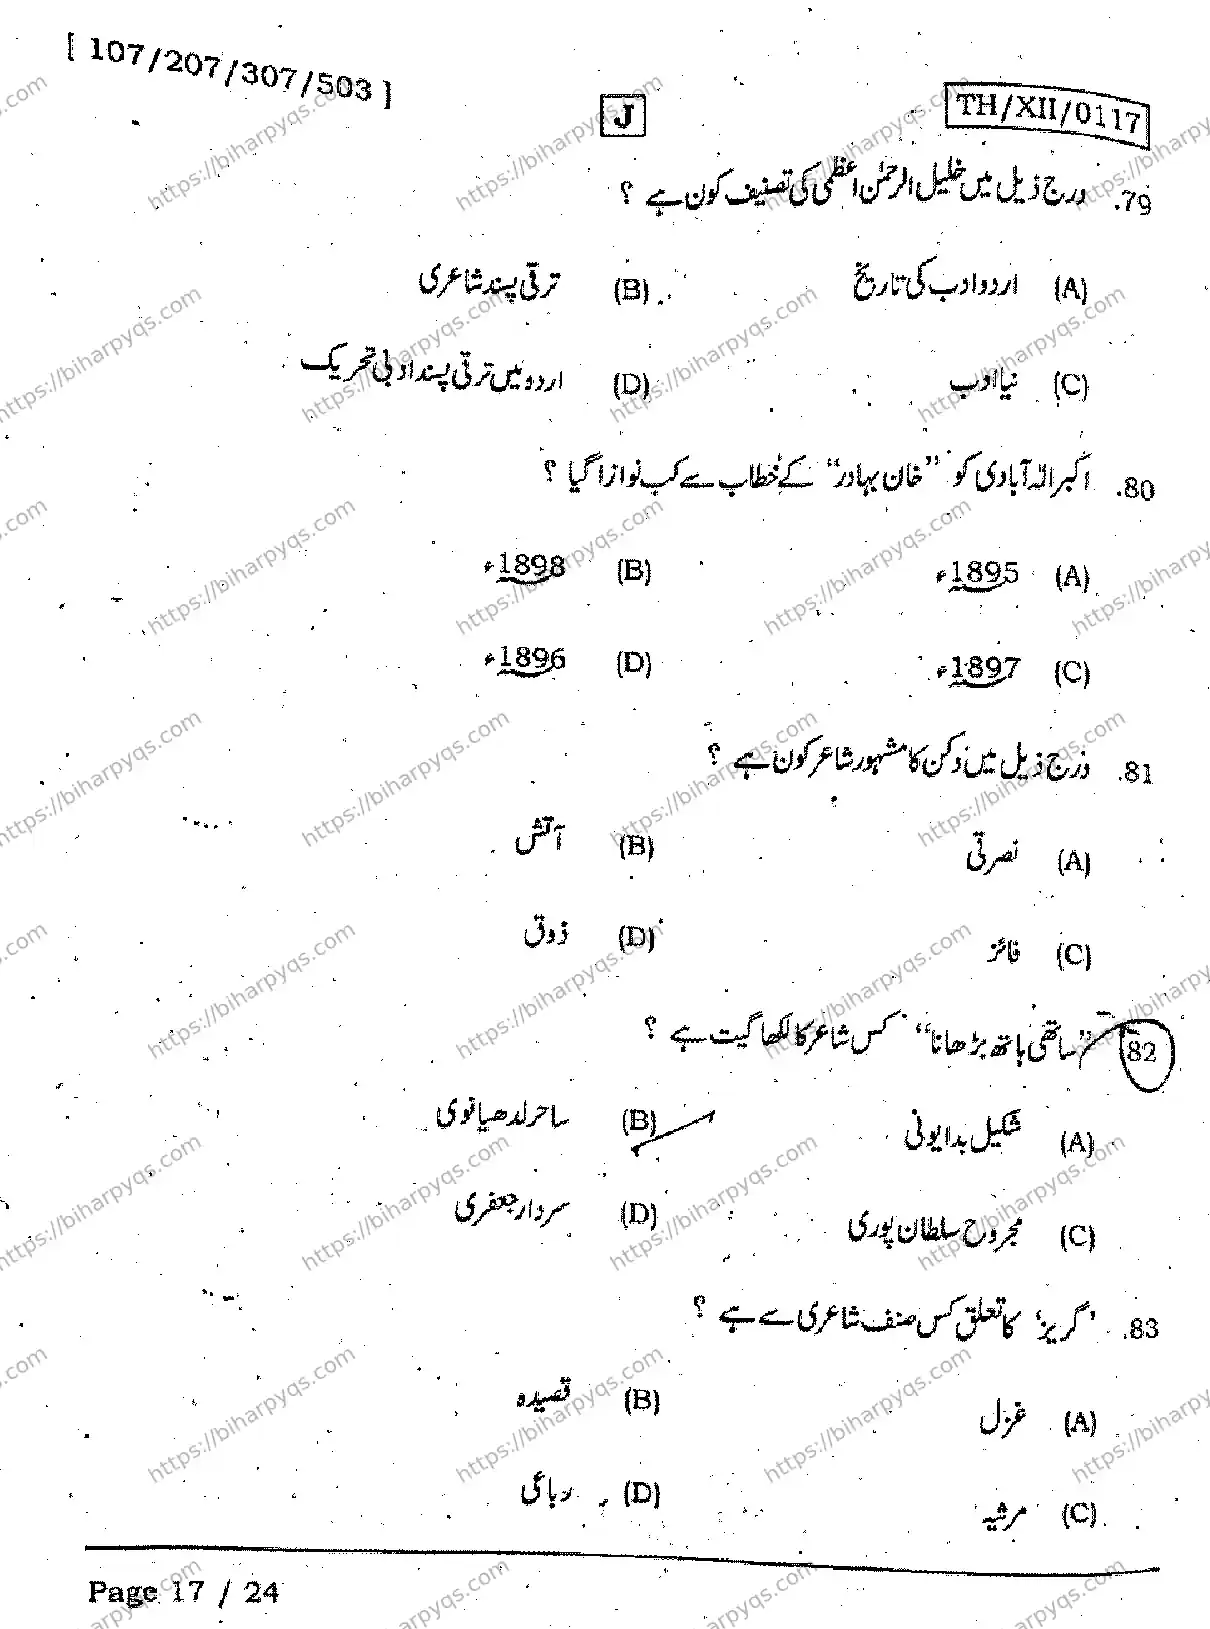 [ 107/207/307/503 ]
J
TH/XII/0117
79. درج ذیل میں خلیل الرحمٰن اعظمی کی تصنیف کون ہے ؟
(A) اردو ادب کی تاریخ (B) ترقی پسند شاعری
(C) نیا ادب (D) اردو میں ترقی پسند ادبی تحریک
80. اکبر الٰہ آبادی کو ”خان بہادر“ کے خطاب سے کب نوازا گیا ؟
(A) 1895ء (B) 1898ء
(C) 1897ء (D) 1896ء
81. درج ذیل میں دکن کا مشہور شاعر کون ہے ؟
(A) نصرتی (B) آتش
(C) فائز (D) ذوق
82 ”ساتھی ہاتھ بڑھانا“ کس شاعر کا لکھا گیت ہے ؟
(A) شکیل بدایونی (B) ساحر لدھیانوی
(C) مجروح سلطان پوری (D) سردار جعفری
83. ’گریز‘ کا تعلق کس صنف شاعری سے ہے ؟
(A) غزل (B) قصیدہ
(C) مرثیہ (D) رباعی
Page 17 / 24
https://biharpyqs.com